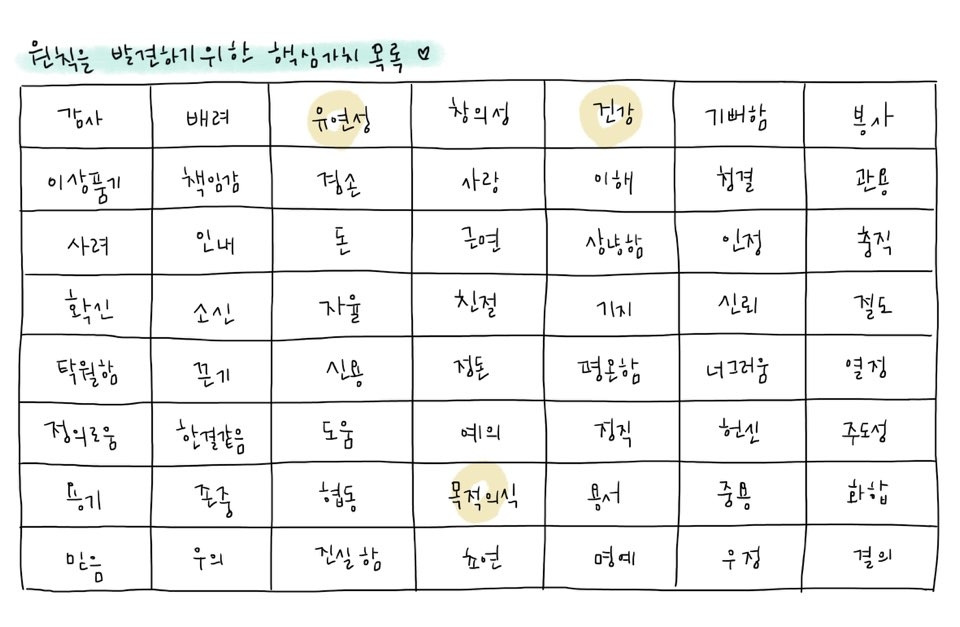 원칙을 발견하기위한 핵심가치 목록 ♡
감사 배려 유연성 창의성 건강 기뻐함 봉사
이상품기 책임감 겸손 사랑 이해 청결 관용
사려 인내 돈 근면 상냥함 인정 충직
확신 소신 자율 친절 기지 신뢰 절도
탁월함 끈기 신용 정돈 평온함 너그러움 열정
정의로움 한결같음 도움 예의 정직 헌신 주도성
용기 존중 협동 목적의식 용서 중용 화합
믿음 우의 진실함 초연 명예 우정 결의